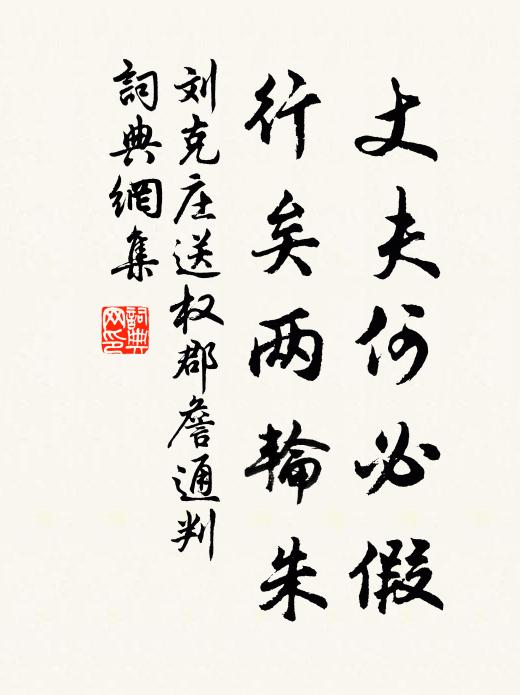 丈夫何必假
行矣两輪朱
刘克庄送权郡詹通判
詞典網集
詞典网印